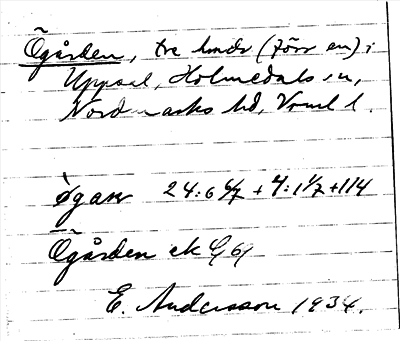 Ögården, tre hmdr (förr en) i
Uppsal, Holmedals sn,
Nordmarks hd, Vrml l.
24:6 6/7 + 7:1 1/7 + 114
Ögården ek G 69
E. Andersson 1934.